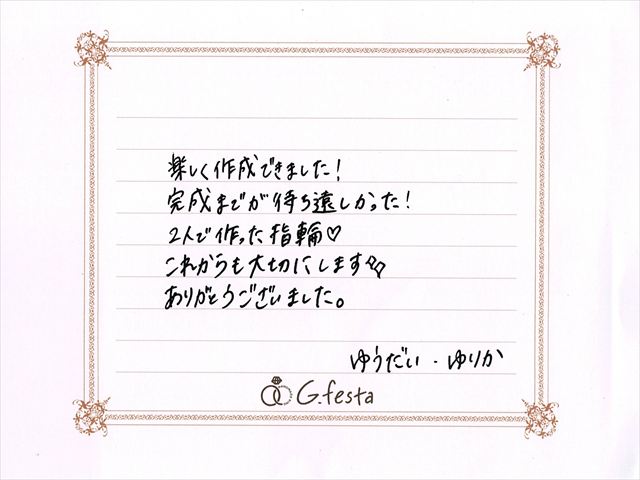 楽しく作成できました!
完成までが待ち遠しかった!
2人で作った指輪♡
これからも大切にします
ありがとうございました。
ゆうだい・ゆりか
G.festa